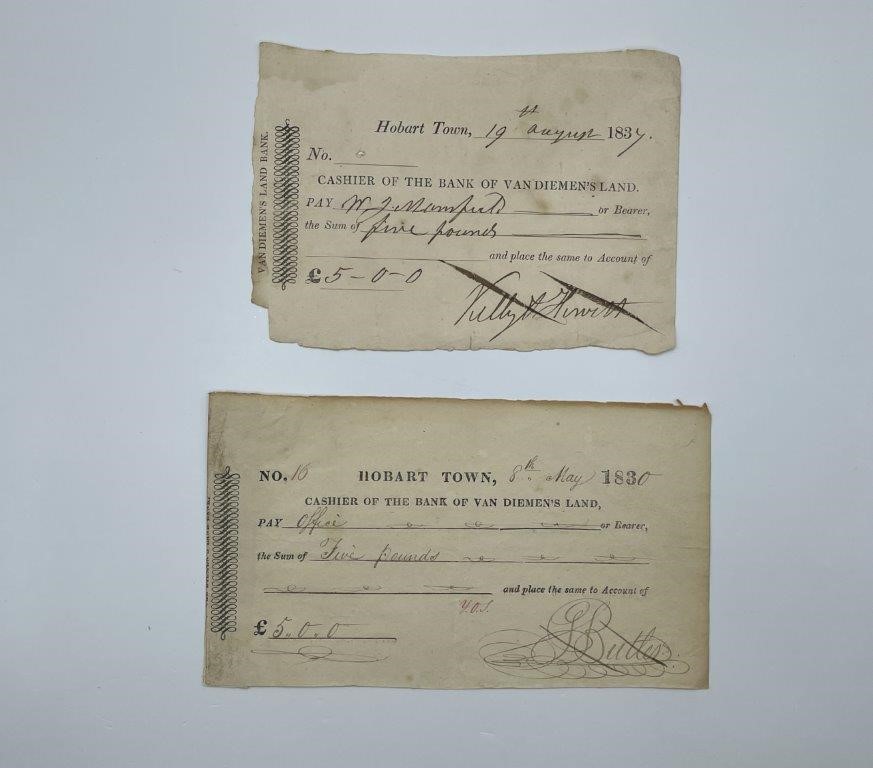 VAN DIEMEN'S LAND BANK.
Hobart Town, 19th august 1837.
No.
CASHIER OF THE BANK OF VAN DIEMEN'S LAND.
PAY W J Mansfield or Bearer,
the Sum of five pounds
and place the same to Account of
£ 5-0-0
Kelly & Hewitt
NO. 16 HOBART TOWN, 8th May 1830
CASHIER OF THE BANK OF VAN DIEMEN'S LAND,
PAY Office or Bearer,
the Sum of Five pounds
and place the same to Account of
£ 5.0.0
Butler